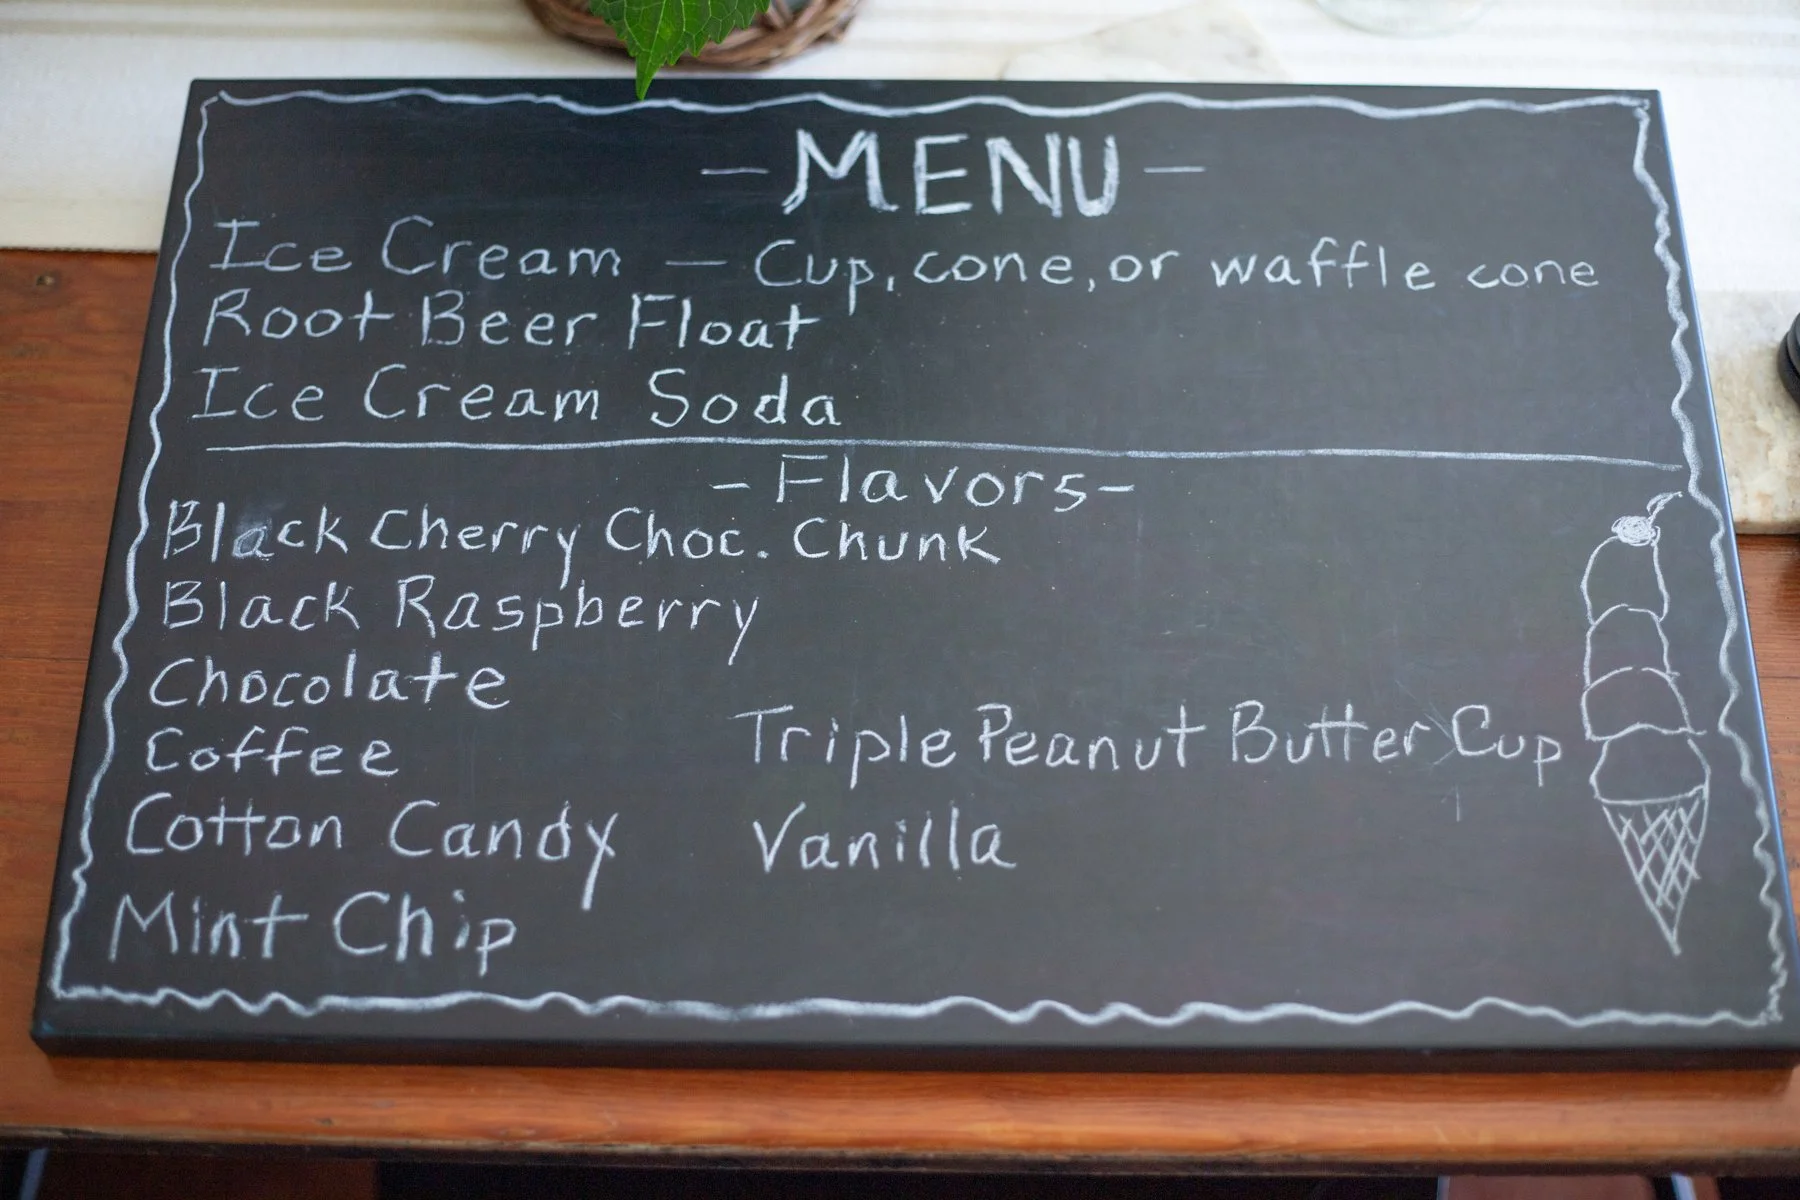 - MENU -
Ice Cream — Cup, cone, or waffle cone
Root Beer Float
Ice Cream Soda
- Flavors -
Black Cherry Choc. Chunk
Black Raspberry
Chocolate
Coffee
Cotton Candy
Mint Chip
Triple Peanut Butter Cup
Vanilla